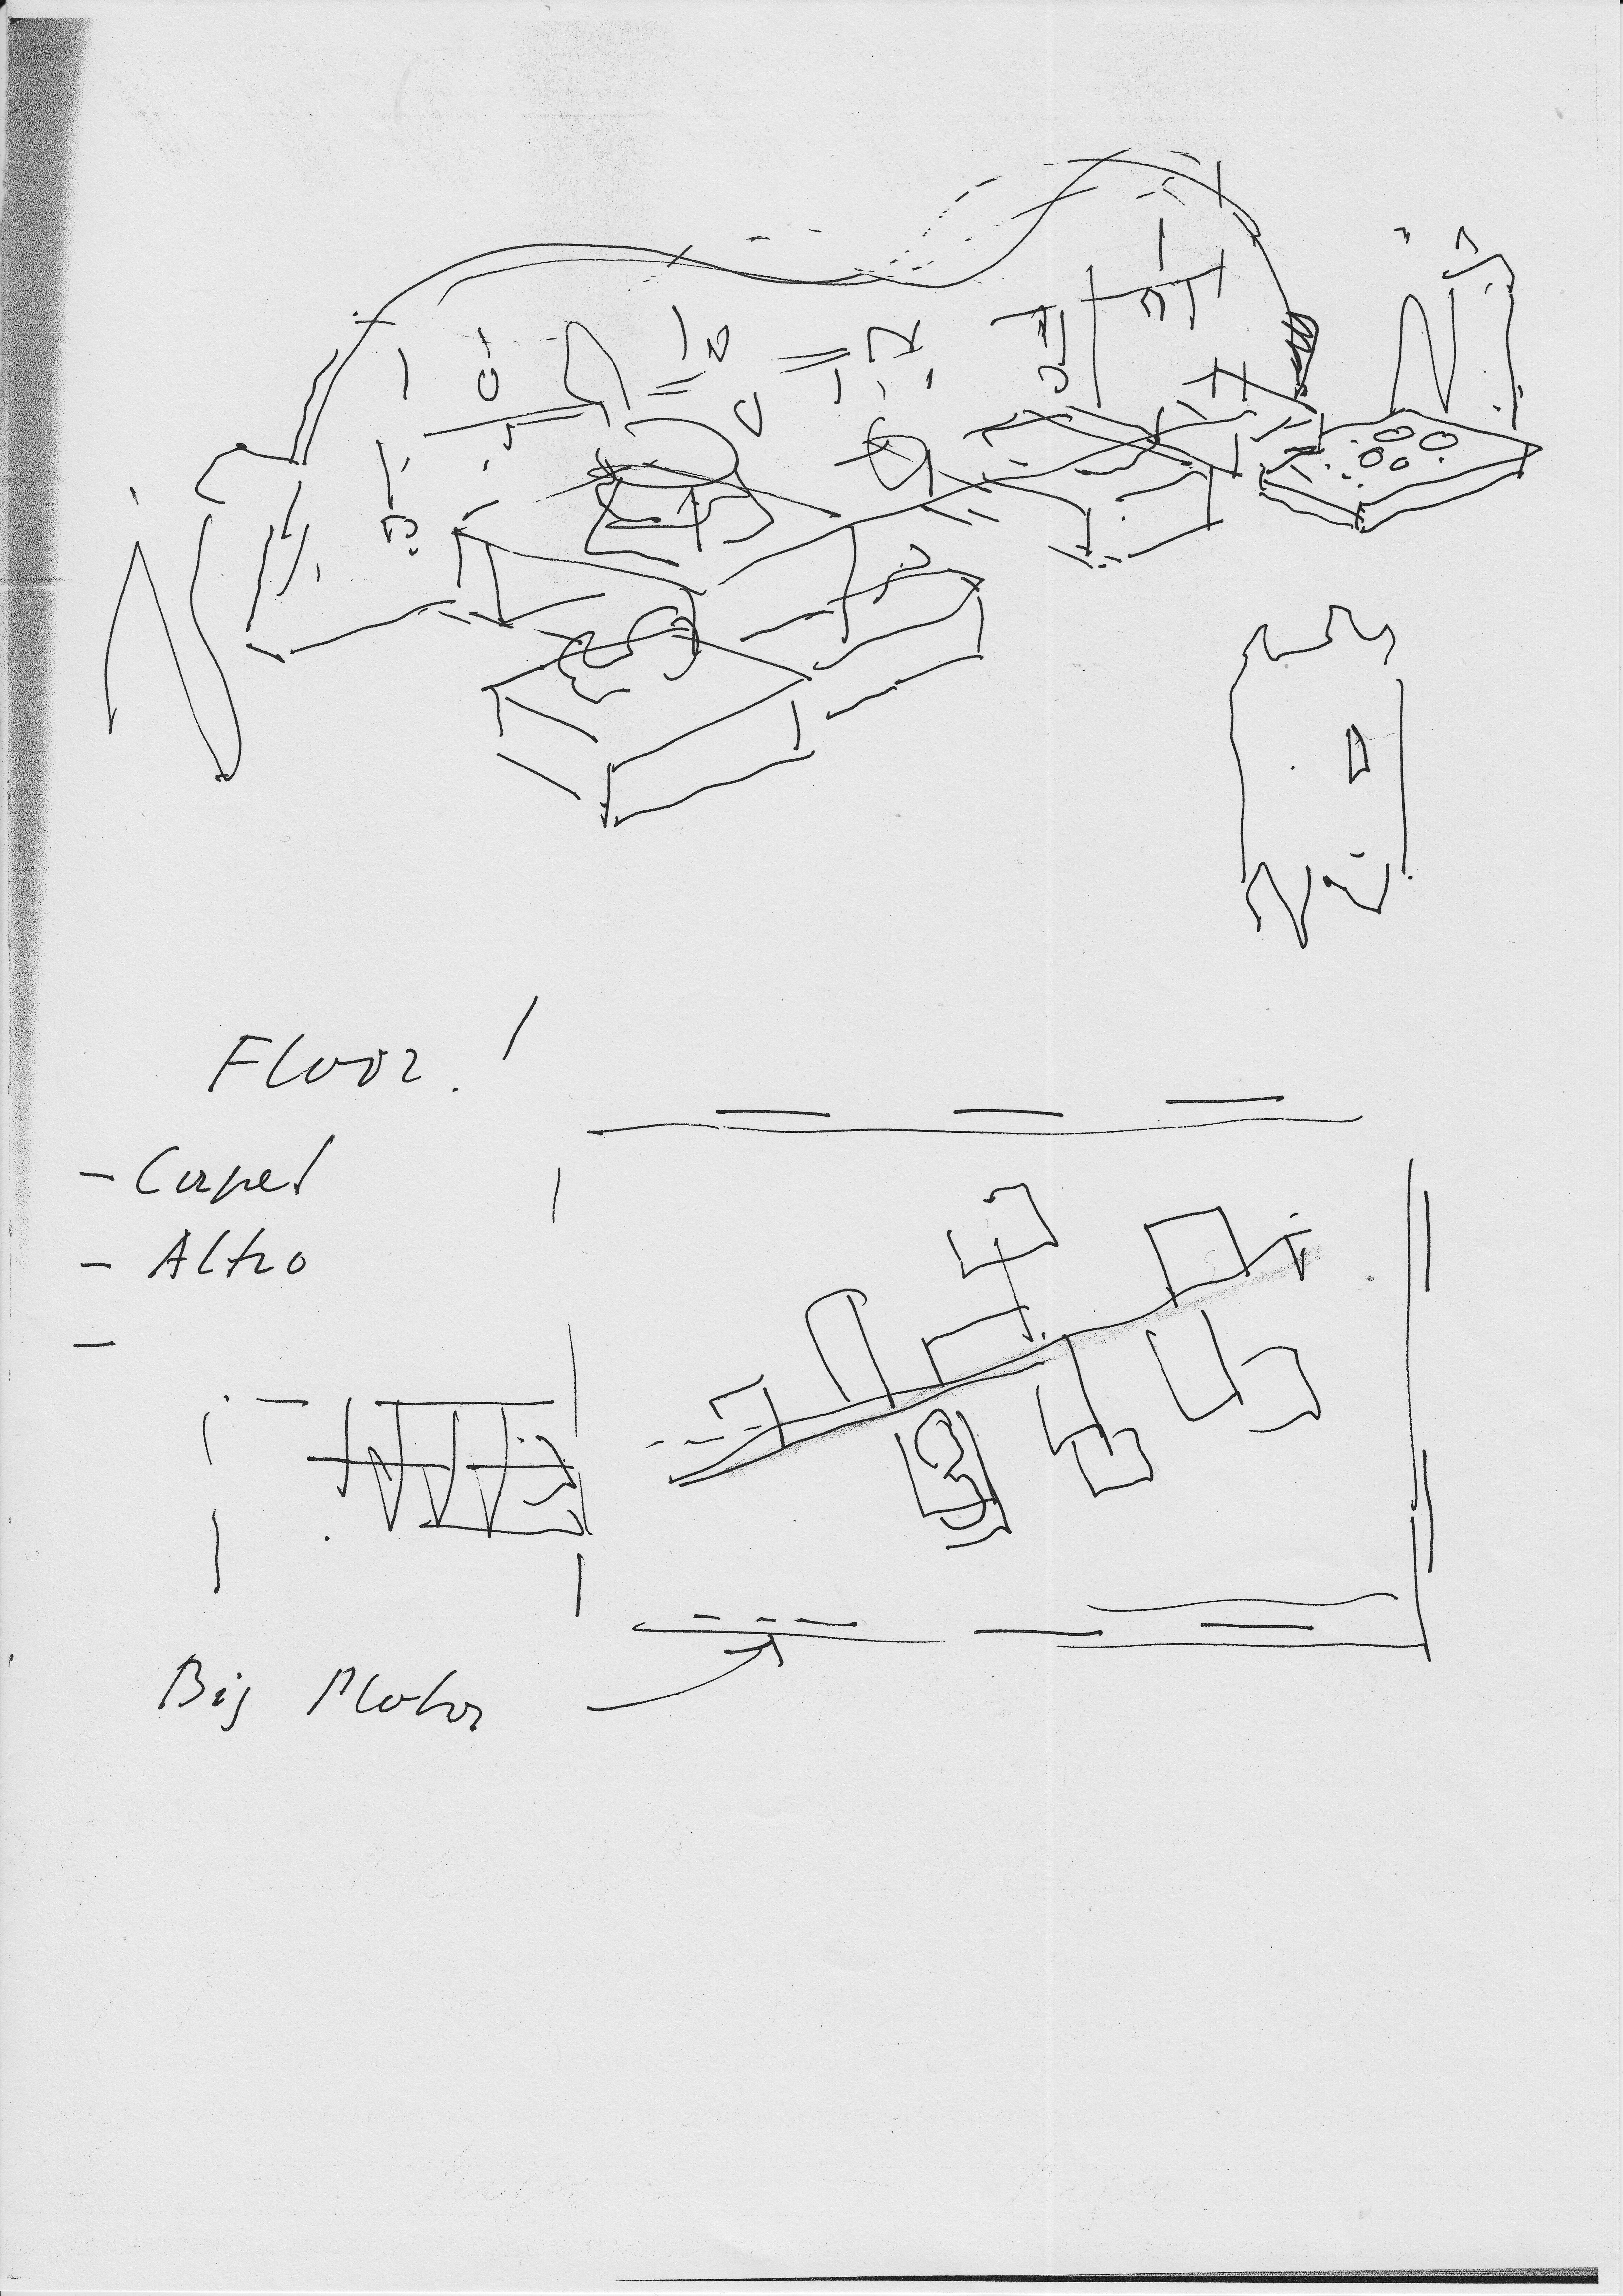 Floor. !
- Carpet
- Altro
-
Big Motor